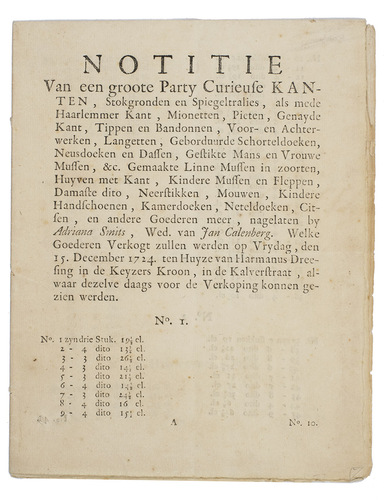 NOTITIE
Van een groote Party Curieuse KAN-
TEN, Stokgronden en Spiegeltralies, als mede
Haarlemmer Kant, Mionetten, Picten, Genayde
Kant, Tippen en Bandonnen, Voor- en Achter-
werken, Langetten, Geborduurde Schorteldoeken,
Neusdoeken en Dassen, Gestikte Mans en Vrouwe
Mussen, &c. Gemaakte Linne Mussen in zoorten,
Huyven met Kant, Kindere Mussen en Fleppen,
Damaste dito, Neerstikken, Mouwen, Kindere
Handschoenen, Kamerdoeken, Neteldoeken, Cit-
sen, en andere Goederen meer, nagelaten by
Adriana Smits, Wed. van Jan Calenberg. Welke
Goederen Verkogt zullen werden op Vrydag, den
15. December 1724. ten Huyze van Harmanus Dree-
sing in de Keyzers Kroon, in de Kalverstraat, al-
waar dezelve daags voor de Verkoping konnen ge-
zien werden.
No. 1.
No. 1 zyn drie Stuk. 19 el.
2 - 4 dito 13 el.
3 - 3 dito 26 el.
4 - 3 dito 14 el.
5 - 3 dito 21 el.
6 - 4 dito 14 el.
7 - 3 dito 24 el.
8 - 4 dito 16 el.
9 - 4 dito 15 el.
A No. 10.